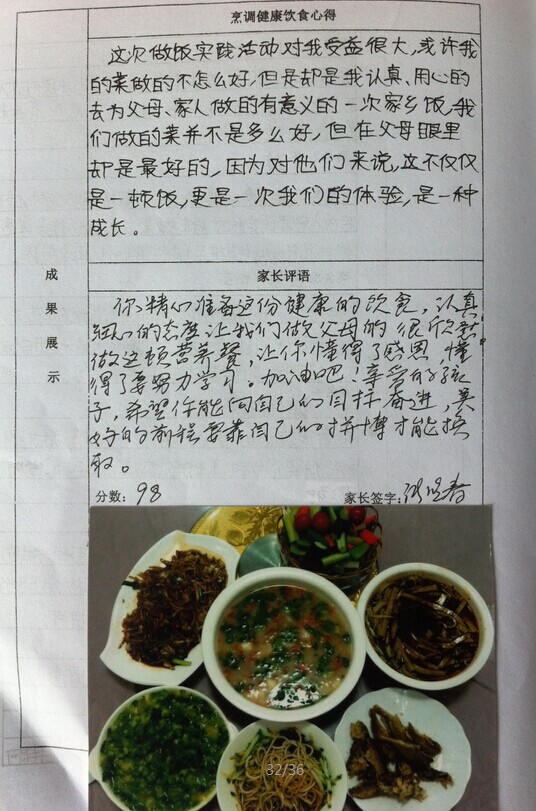 烹调健康饮食心得
这次做饭实践活动对我受益很大,或许我
的菜做的不怎么好,但是却是我认真、用心的
去为父母、家人做的有意义的一次家乡饭,我
们做的菜并不是多么好,但在父母眼里
却是最好的,因为对他们来说,这不仅仅
是一顿饭,更是一次我们的体验,是一种
成长。
成果展示
家长评语
你精心准备这份健康的饮食,认真
细心的态度让我们做父母的很欣慰。
做这顿营养餐,让你懂得了感恩,懂
得了要努力学习。加油吧!亲爱的孩
子,希望你能向自己的目标奋进,美
好的前程要靠自己的拼搏才能换
取。
分数:98
家长签字:
32/36